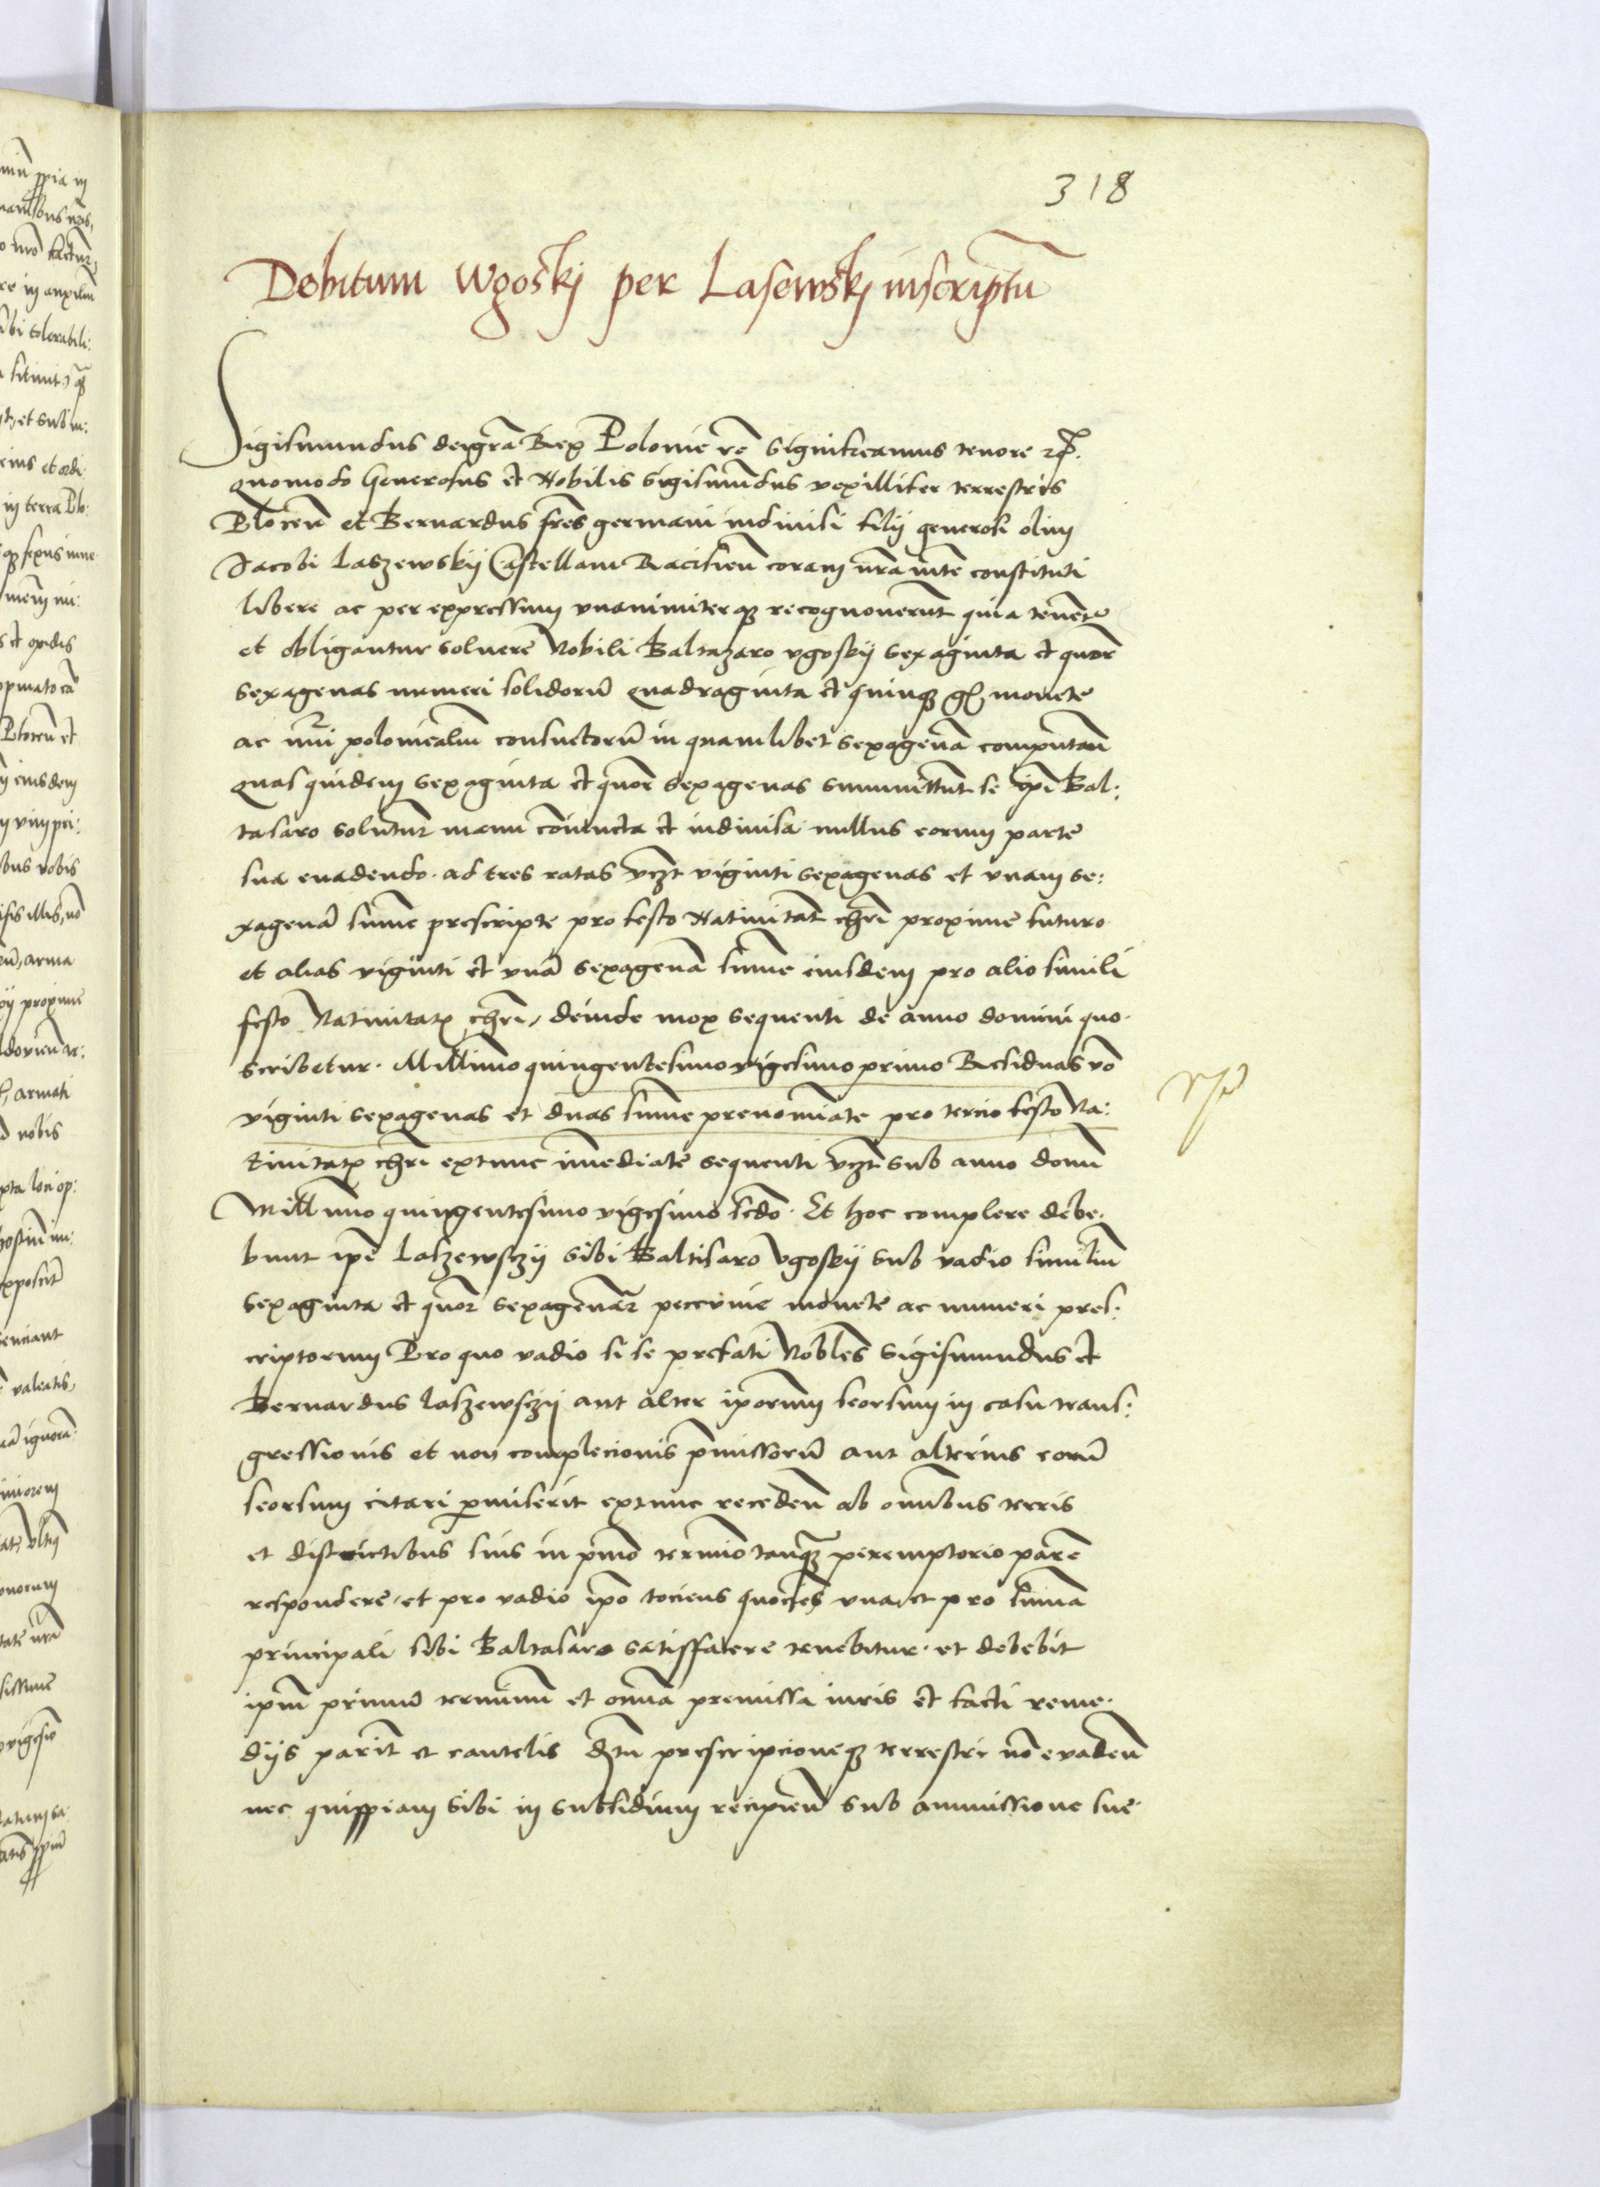 318
Debitum Wgoskj per Lasewskj inscriptu
Sigismundus dei gra Rex Polonie rc significamus tenore
quomodo Generosus et Nobilis Sigismundus vexillifer terrestris
Plocen et Bernardus fres germani indivisi filij generosi olim
Jacobi Laszewskij Castellani Raciasien coram constituti
libere ac per expressum vnanimiterq recognoverunt quia tenentr
et obligantur solvere Nobili Baltazaro vgoskij sexaginta et quor
sexagenas numeri solidoru quadraginta et quinq monete
ac nri polonicaliu consuetoru in quamlibet sexagena computan
quas quidem sexaginta et quor sexagenas summittunt se ipi Bal:
tasaro soluturi manu coniuncta et indivisa nullus eorum parte
sua evadendo. ad tres ratas vczt viginti sexagenas et vnam se:
xagena sume prescripte pro festo Nativitat chri proxime futuro
et alias viginti et vna sexagena sume eiusdem pro alio simili
festo Nativitatis chri, deinde mox sequenti de anno domini quo
scribetur. Millimo quingentesimo vigesimo primo Residuas vo
viginti sexagenas et duas sume prenominate pro tercio festo Na:
tivitatis chri extunc imediate sequenti vczt sub anno domi
Millimo quingentesimo vigesimo scdo. Et hoc complere debe.
bunt ipi Laszewsczij sibi Baltisaro Vgoskij sub vadio similiu
sexaginta et quor sexagenar peccunie monete ac numeri pres:
criptorum Pro quo vadio si se prefati Nobles Sigismundus et
Bernardus Laszewsczij aut alter iporum seorsum in casu trans:
gressionis et non complecionis pmissoru aut alterius eoru
seorsum citari pmiserit extunc receden ab omibus terris
et districtibus suis in pmo termio tanq peremptorio pare
respondere, et pro vadio ipo tociens quociens vna et pro suma
principali sibi Baltasaro satisfacere tenebitur. et debebit
ipm primu terminu et omia premissa iuris et facti reme.
dijs parit et cautelis prescripcioneq terrestri no evaden
nec quippiam sibi in subsidium recipien sub ammissione sue.